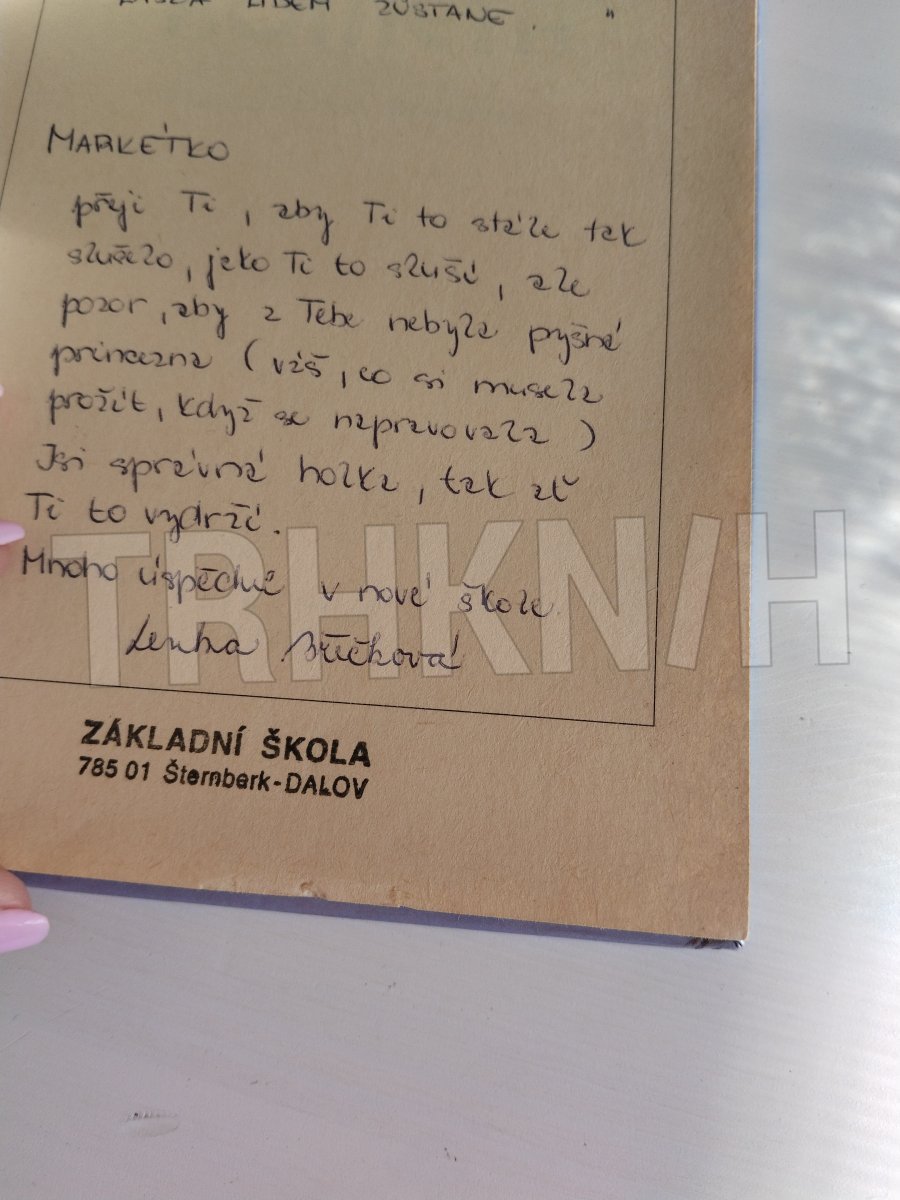 LIDEM ZŮSTANE. "
MARKÉTKO
přeji Ti, aby Ti to stále tak
slušelo, jako Ti to sluší, ale
pozor, aby z Tebe nebyla pyšná
princezna (víš, co si musela
prožít, když se napravovala)
Jsi správná holka, tak ať
Ti to vydrží.
Mnoho úspěchů v nové škole
Lenka Bříčková
TRHKNIH
ZÁKLADNÍ ŠKOLA
785 01 Šternberk-DALOV